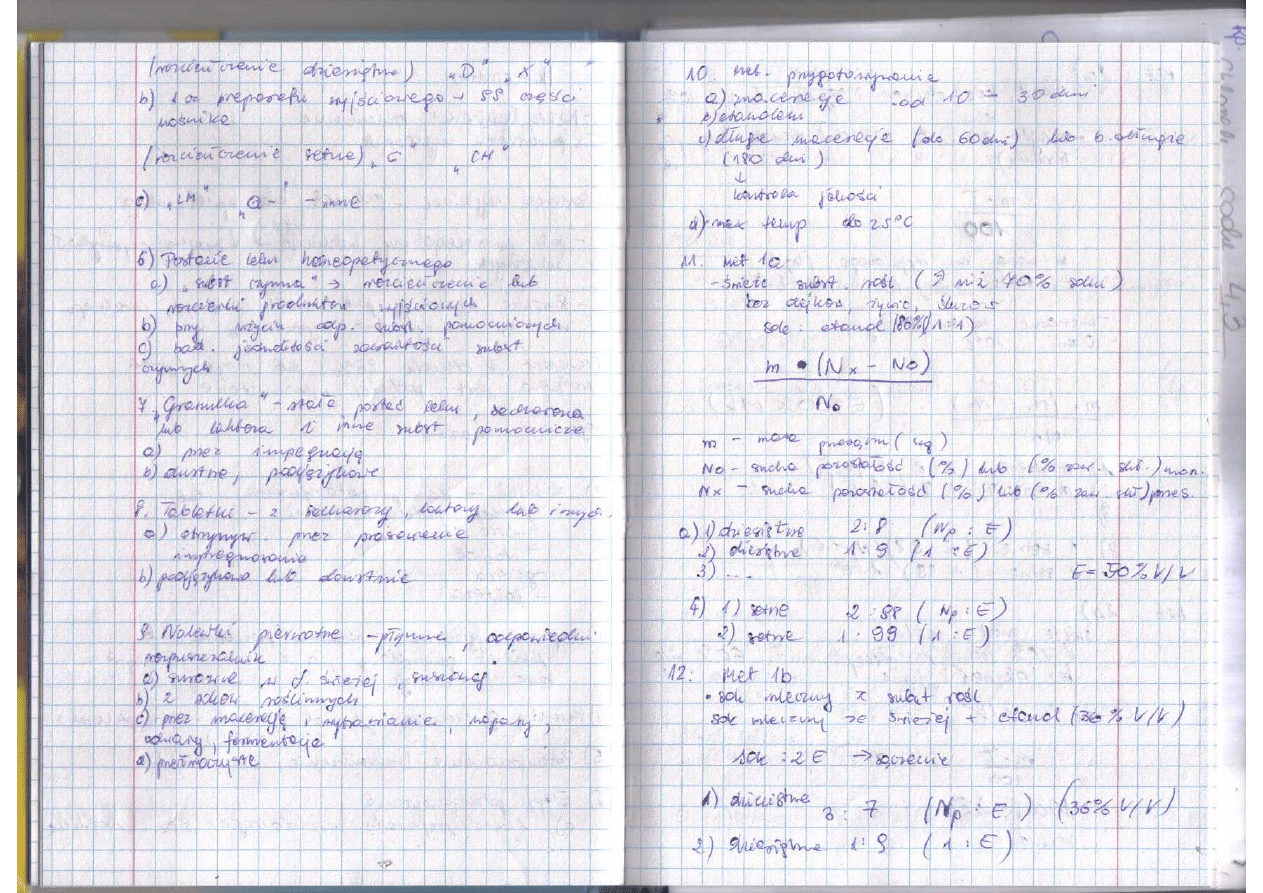 (rozcieńczenie dziesiętne) „D" „X"
b) 1 cz preparatu wyjściowego + 99 części
nośnika
(rozcieńczenie setne) „C" „CH"
c) „LM" „Q-" - inne
6) Postacie leku homeopatycznego
a) „subst czynna" → rozcieńczenie lub
rozcierki produktów wyjściowych
b) przy użyciu odp. subst. pomocniczych
c) bad. jednolitości zawartości subst
czynnych
7. „Granulka" - stała postać leku, sacharoza
lub laktoza i inne subst pomocnicze
a) przez impregnację
b) doustne, podjęzykowe
8. Tabletki - z sacharozy, laktozy lub innych.
a) otrzymyw. przez prasowanie
impregnowanie
b) podjęzykowo lub doustnie
9. Nalewki pierwotne - płynne, odpowiedni
rozpuszczalnik
a) surowce w p. świeżej, suszonej
b) z soków roślinnych
c) przez macerację, wytrawianie, napary,
odwary, fermentacja
d) przeźroczyste
10. Met. przygotowywania
a) maceracja od 10 - 30 dni
b) etanolem
c) długie maceracje (do 60 dni) lub b. długie
(180 dni)
↓
kontrola jakości
d) max temp do 25°C
11. Met 1a
- świeże subst. rośl ( > niż 70% soku)
bez olejków, żywic, śluzów
sok : etanol (86%) (1:1)
m • (Nx - No)
No
m - masa przesącm (kg)
No - sucha pozostałość (%) lub (% zaw. skł.) mon.
Nx - sucha pozostałość (%) lub (% zaw. skł) przes.
a) 1) dziesiętne 2:8 (Np : E)
2) dziesiętne 1:9 (1 : E)
3) .... E = 50% V/V
4) 1) setne 2:98 (Np : E)
2) setne 1:99 (1 : E)
12. Met 1b
• sok mleczny z subst rośl
sok mleczny ze świeżej + etanol (36% V/V)
sok : 2E → sączenie
1) dziesiętne 3:7 (Np : E) (36% V/V)
2) Dziesiętne 1:9 (1 : E)
100